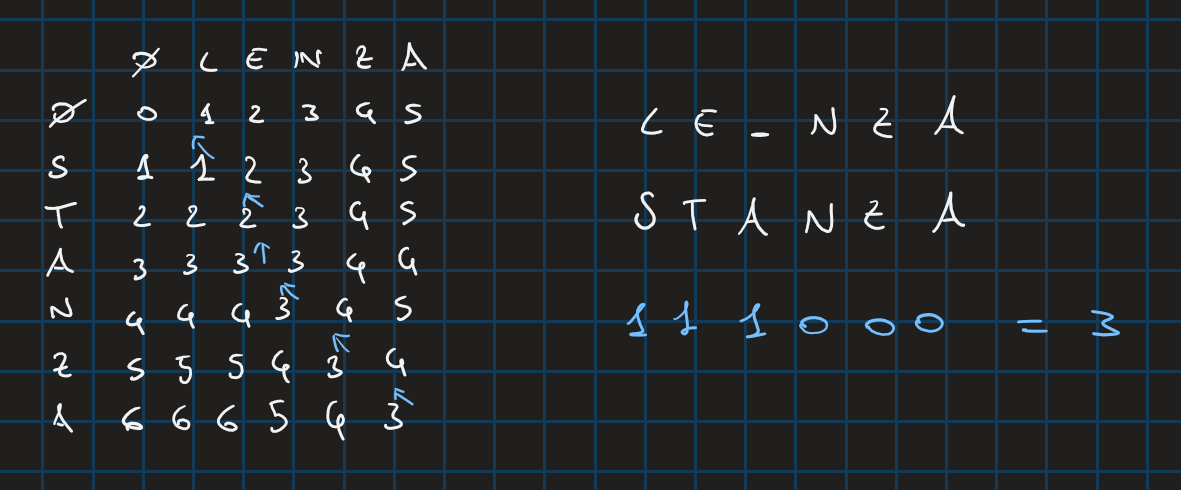 ∅ L E N Z A
∅ 0 1 2 3 4 5
S 1 1 2 3 4 5
T 2 2 2 3 4 5
A 3 3 3 3 4 4
N 4 4 4 3 4 5
Z 5 5 5 4 3 4
A 6 6 6 5 4 3
L E _ N Z A
S T A N Z A
1 1 1 0 0 0 = 3